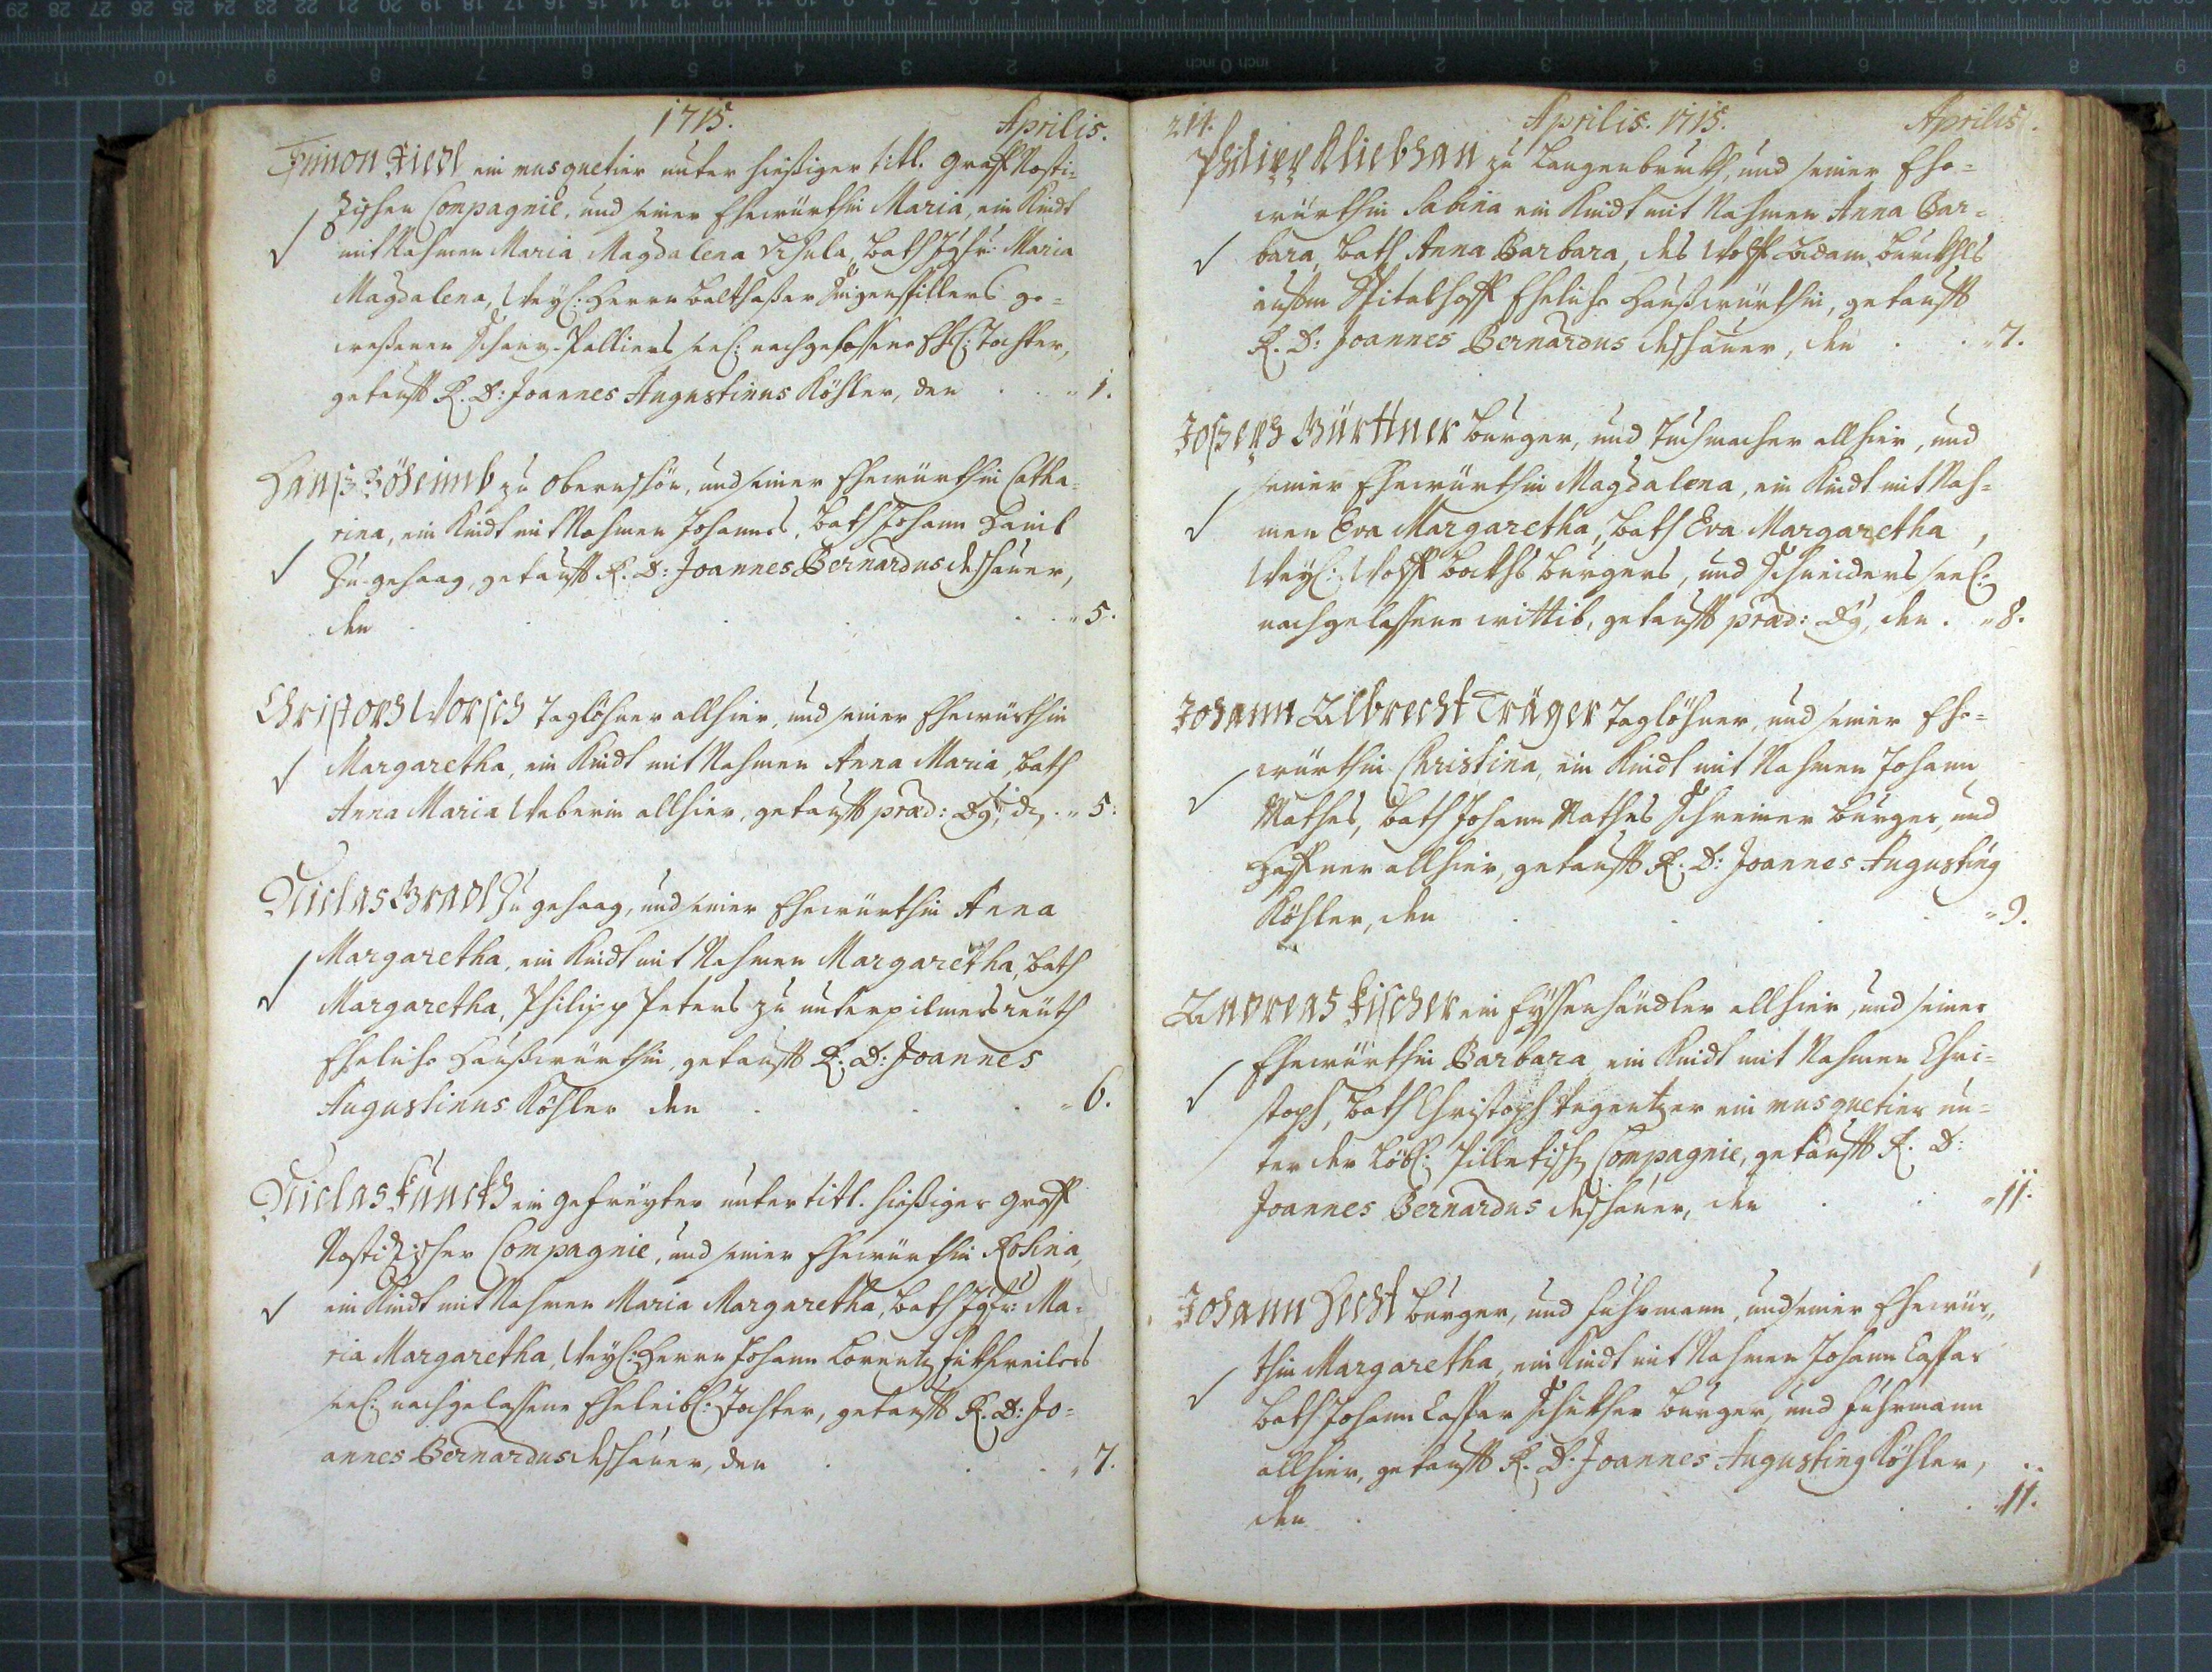 1715. Aprilis.
Simon Riedl ein musquetier unter hießiger titl. Graff Nosti-
zischen Compagnie, und seiner Ehewürthin Maria, ein Kindt
mit Nahmen Maria Magdalena Ursula, Bath Jgfr: Maria
Magdalena, Weyl: Herrn Balthaßar ge-
weßenen seel: nachgelassene Ehel: Tochter,
getaufft R. D: Joannes Augustinus Köhler, den . . „ 1.
Hanß Böheimb zu Obernschön, und seiner Ehewürthin Catha-
rina, ein Kindt mit Nahmen Johannes, Bath Johann
Zu gehaag, getaufft R. D: Joannes Bernardus Deschauer,
den . . . . „ 5.
Christoph Worsch Taglöhner allhier, und seiner Ehewürthin
Margaretha, ein Kindt mit Nahmen Anna Maria, Bath
Anna Maria Weberin allhier, getaufft præd: Dg, dn . „ 5.
Niclas Gradl Zu gehaag, und seiner Ehewürthin Anna
Margaretha, ein Kindt mit Nahmen Margaretha, Bath
Margaretha, Philipp Peters zu unterpilmersreuth
Eheliche Haußwürthin, getaufft R: D: Joannes
Augustinus Köhler den . . . „ 6.
Niclas Funckh ein gefreyter unter titl. hießiger Graff
Nostizischer Compagnie, und seiner Ehewürthin Rosina,
ein Kindt mit Nahmen Maria Margaretha, Bath Jgfr: Ma-
ria Margaretha, Weyl: Herrn Johann Lorentz
seel: nachgelassene Eheleibl: Tochter, getaufft R. D: Jo-
annes Bernardus Deschauer, den . . . „ 7.
214. Aprilis. 1715. Aprilis.
Philipp Kliebhan zu Langenbruckh, und seiner Ehe-
würthin Sabina ein Kindt mit Nahmen Anna Bar-
bara, Bath Anna Barbara, des Wolff Adam
außm Spitalhoff Eheliche Haußwürthin, getaufft
R. D: Joannes Bernardus Deschauer, den . . „ 7.
Joseph Gürttner Burger, und Tuchmacher allhier, und
seiner Ehewürthin Magdalena, ein Kindt mit Nah-
men Eva Margaretha, Bath Eva Margaretha,
Weyl: Wolff Burgers, und Schneiders seel:
nachgelassene wittib, getaufft præd: Dg, den . „ 8.
Johann Albrecht Träger Taglöhner, und seiner Ehe-
würthin Christina, ein Kindt mit Nahmen Johann
Mathes, Bath Johann Mathes Schreiner Burger, und
Haffner allhier, getaufft R. D: Joannes Augustinus
Köhler, den . . . . „ 9.
Andreas Fischer ein Eyssenhändler allhier, und seiner
Ehewürthin Barbara ein Kindt mit Nahmen Chri-
stoph, Bath Christoph ein musquetier un-
ter der Löbl: Compagnie, getaufft R. D:
Joannes Bernardus Deschauer, den . . „ 11.
Johann Hecht Burger, und Fuhrmann, und seiner Ehewür„
thin Margaretha, ein Kindt mit Nahmen Johann Caspar
Bath Johann Caspar Burger, und Fuhrmann
allhier, getaufft R. D: Joannes Augustinus Köhler,
den . . . „ 11.